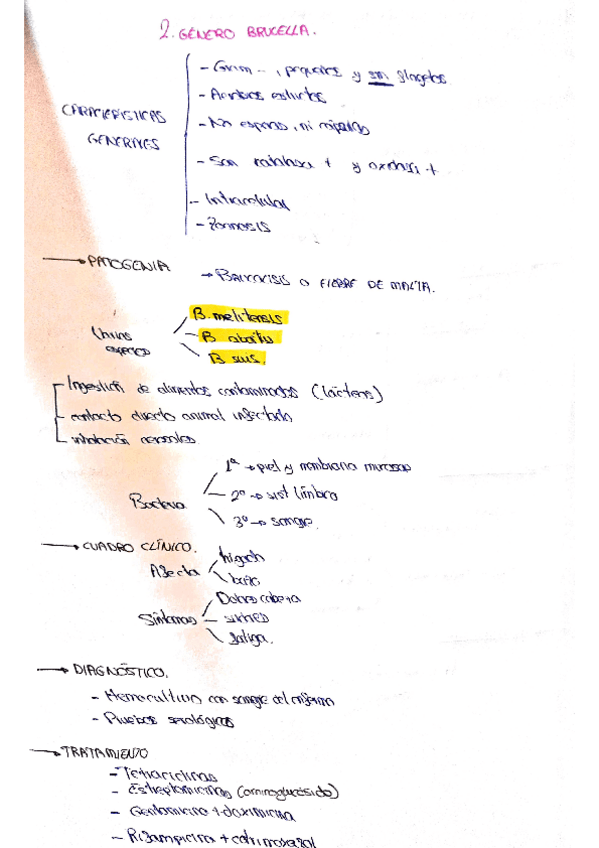 2. GÉNERO BRUCELLA.
- Gram -, pequeños y sin flagelos
- Aerobios estrictos
CARACTERÍSTICAS
- No esporas, ni
GENERALES
- Son catalasa + y oxidasa +
- Intracelular
- Zoonosis
→ PATOGENIA
→ Brucelosis o FIEBRE DE MALTA.
B. melitensis
B abortus
B suis.
- Ingestión de alimentos contaminados (lácteos)
- contacto directo animal infectado
- inhalación aerosoles
1º → piel y membrana mucosas
Bacteria
2º → sist linfático
3º → sangre.
→ CUADRO CLÍNICO.
hígado
Afecta
bazo
Dolores cabeza
Síntomas
fatiga.
→ DIAGNÓSTICO.
- Hemocultivo con sangre del enfermo
- Pruebas serológicas
→ TRATAMIENTO
- Tetraciclinas
- Estreptomicina (aminoglucósido)
- Gentamicina + doxiciclina
- Rifampicina + cotrimoxazol